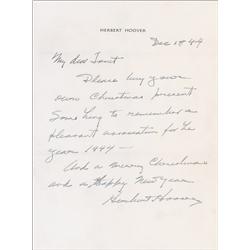 HERBERT HOOVER
Dec 18 44
My dear
Please buy your
own Christmas present
Something to remember a
pleasant association for the
year 1944 —
And a merry Christmas
and a Happy New Year
Herbert Hoover